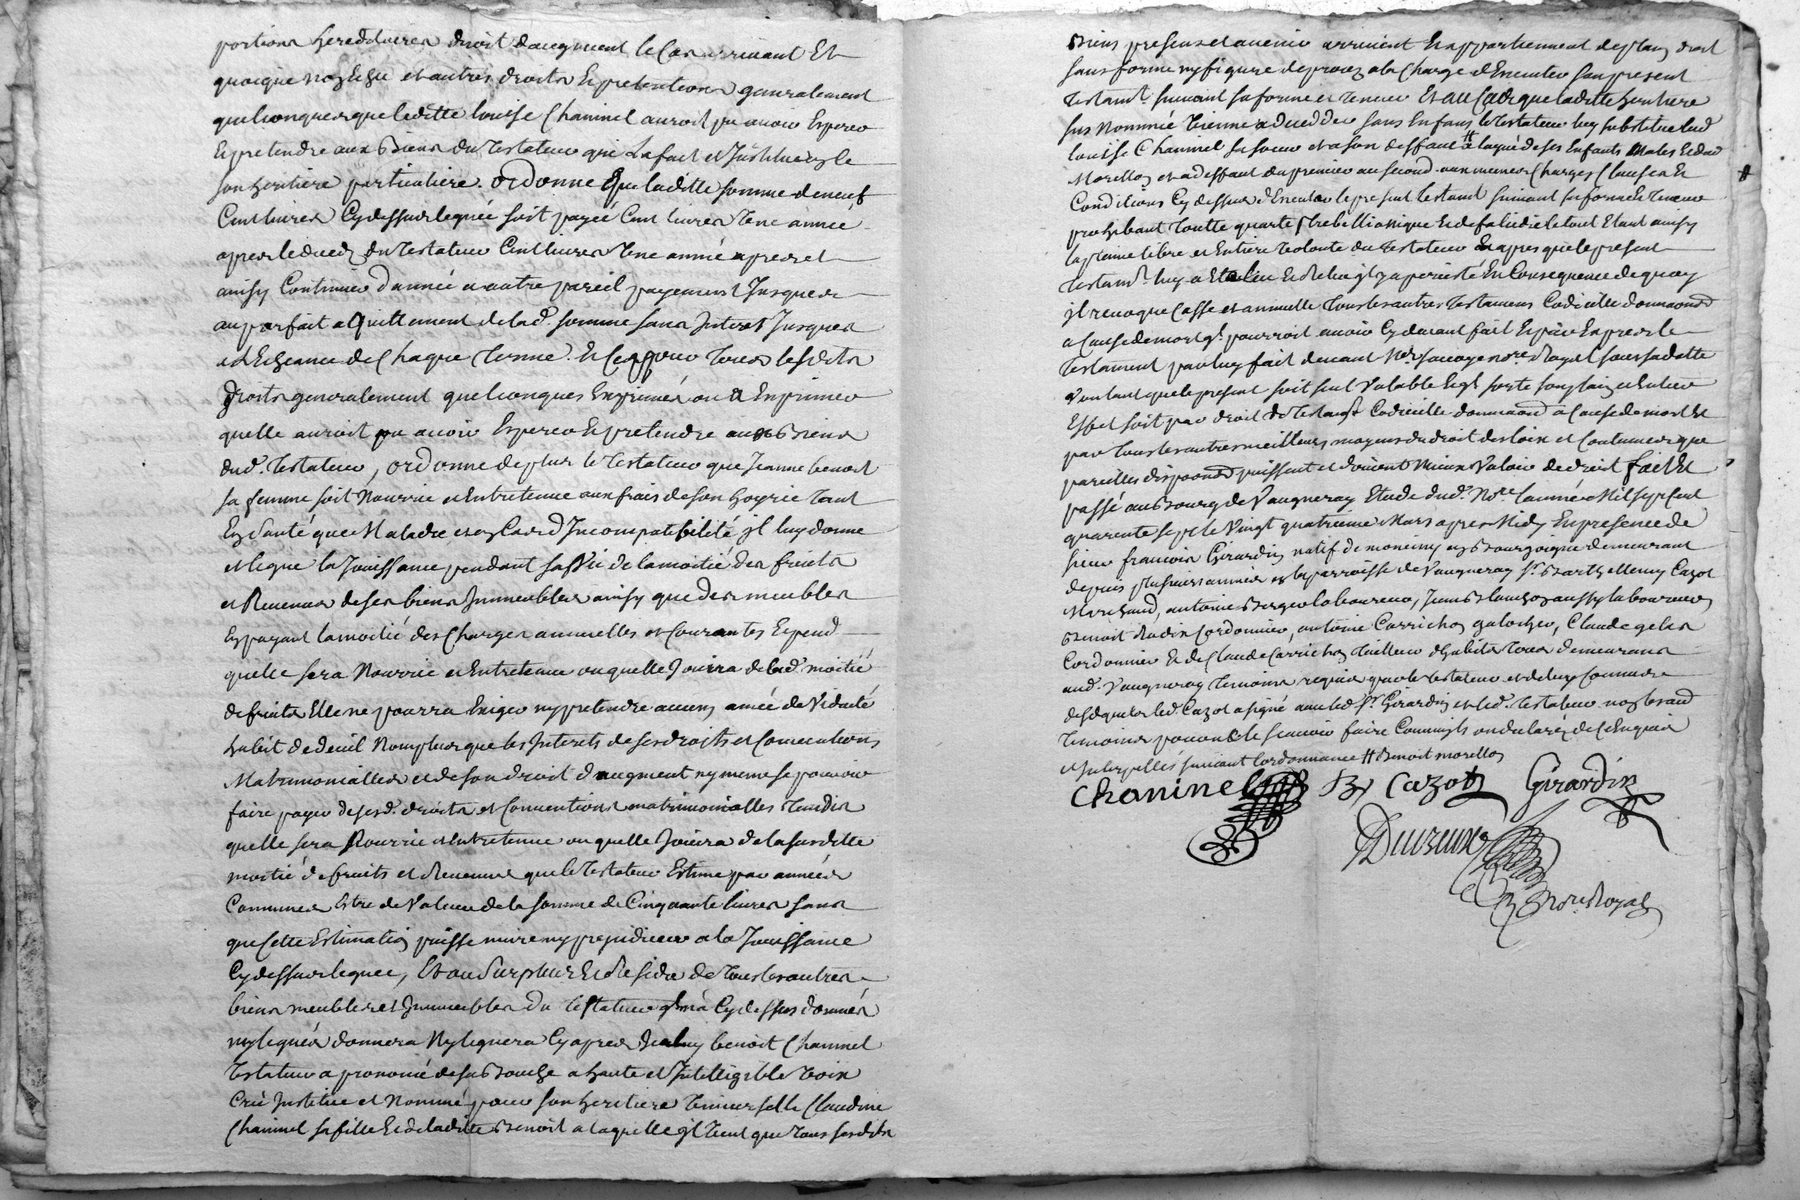 portions hereditaires droit daugment le Cas arrivant Et
quoique noyesgu et autres droits Et pretentions generalement
quelconques que laditte louise Chaninel auroit pu avoir Esperer
Et pretendre aux Biens du Testateur qui la fait et Instituee
son heritiere particuliere. ordonne Que laditte somme de neuf
Cent livres Cy dessus leguée soit payeé Cent livres Une année
apres le deces du Testateur Cent livres Une année apres et
ainsy Continuer d'année a autre pareil payement Jusques
au parfait aquittement de lad. somme sans Interest Jusques
a lEcheance de Chaque Terme. Et Ce pour Tous lesdits
Droits generalement quelconques Exprimés ou a Exprimer
quelle auroit pu avoir Esperer Et pretendre aux Biens
dud. Testateur, ordonne de plus le Testateur que Jeanne benoit
sa femme soit Nourrie et Entretenue aux frais de son hoyrie Tant
En Santé que Maladie et en Cas d'Incompatibilité jl luy donne
et legue la Jouissance pendant sa Vie de la moitié des fruits
et Revenus de ses biens Immeubles ainsy que des meubles
En payant la moitié des Charges annuelles et Courantes Et pend.
quelle sera Nourrie et Entretenue ou quelle Jouira de lad. moitié
de fruits Elle ne pourra Exiger ny pretendre aucune année de Viduité
habit de deuil Non plus que les Interets de ses droits et Conventions
Matrimonialles et de son droit d'augment ny meme se pouvoir
faire payer de sesd. droits et Conventions matrimonialles Tandis
quelle sera Nourrie et Entretenue ou quelle Jouira de la susditte
moitié de fruits et Revenus que le Testateur Estime par années
Communes Estre de Valeur de la somme de Cinquante livres sans
que Cette Estimation puisse nuire ny prejudicier a la Jouissance
Cy dessus leguée, Et au Surplus Et Residu de Tous les autres
biens meubles et Immeubles du testateur qu'il n'a Cy dessus donnés
ny legués donnera Ny leguera Cy apres Icelluy benoit Chaninel
Testateur a prononcé de sa Bouche a haute et Intelligible Voix
Creé Institué et Nommé pour son heritiere Universelle Claudine
Chaninel sa fille Et de laditte Benoit a laquelle jl Veut que Tous sesdits
Biens presens et avenir arrivent Et appartiennent de plain droit
sans forme ny figure de procez a la Charge d'Executer son present
Testamt. suivant sa forme et Teneur Et au Cas que laditte heritiere
sus Nommée Vienne a deceder sans Enfans le Testateur luy substitue lad.
louise Chaninel sa soeur et a son deffaut # a layné de ses Enfants Males Et dud.
Morellon et a deffaut du premier au second aux memes Charges Clauses Et
Conditions Cy dessus d'Executer le present Testamt suivant sa forme Et Teneur
prohibant Toutte quarte Trebellianique Et de falcidie le tout Etant ainsy
la pleine libre et Entiere Volonté du Testateur Et apres que le present
Testamt. luy a Eté lu Et Relu jl y a persisté En Consequence de quoy
jl revoque Casse et annulle Tous les autres Testamens Codicille donnaond
a Cause de mort qil pourroit avoir Cy devant fait Et par Expres le
Testament par luy fait devant Me Sauvage nore Royal sous sa datte
Voulant que le present soit seul Valable Et qil sorte son plain et Entier
Effet soit par droit de Testamt Codicille donnaond a Cause de mort Et
par tous les autres meilleurs moyens du droit des loix et Coutumes que
pareilles disponds puissent et doivent Mieux Valoir de droit fait Et
passé au Bourg de Vaugneray Etude dud. Nore lannée Mil sept cent
quarente sept le Vingt quatrieme Mars apres Midy En presence de
sieur francois Girardin natif de en Bourgoigne demeurant
depuis plusieurs années en la parroisse de Vaugneray Sr. Barthellemy Cazot
Marchand, antoine Berger laboureur, Jean aussy laboureur
Benoit Radix Cordonnier, antoine Corrichon galocher, Claude gelas
Cordonnier Et de Claude Corrichon Tailleur d'habits Tous demeurans
aud. Vaugneray Temoins requis par le Testateur et de luy Connus
desquels led. Cazot a signé avec led Sr. Girardin et led. Testateur non les aud
Temoins pour ne le scavoir faire Comme jls ont declaré de ce Enquis
et Interpellés suivant l'ordonnance # Benoit morellon
Chaninel By Cazot Girardin
Nore Royal